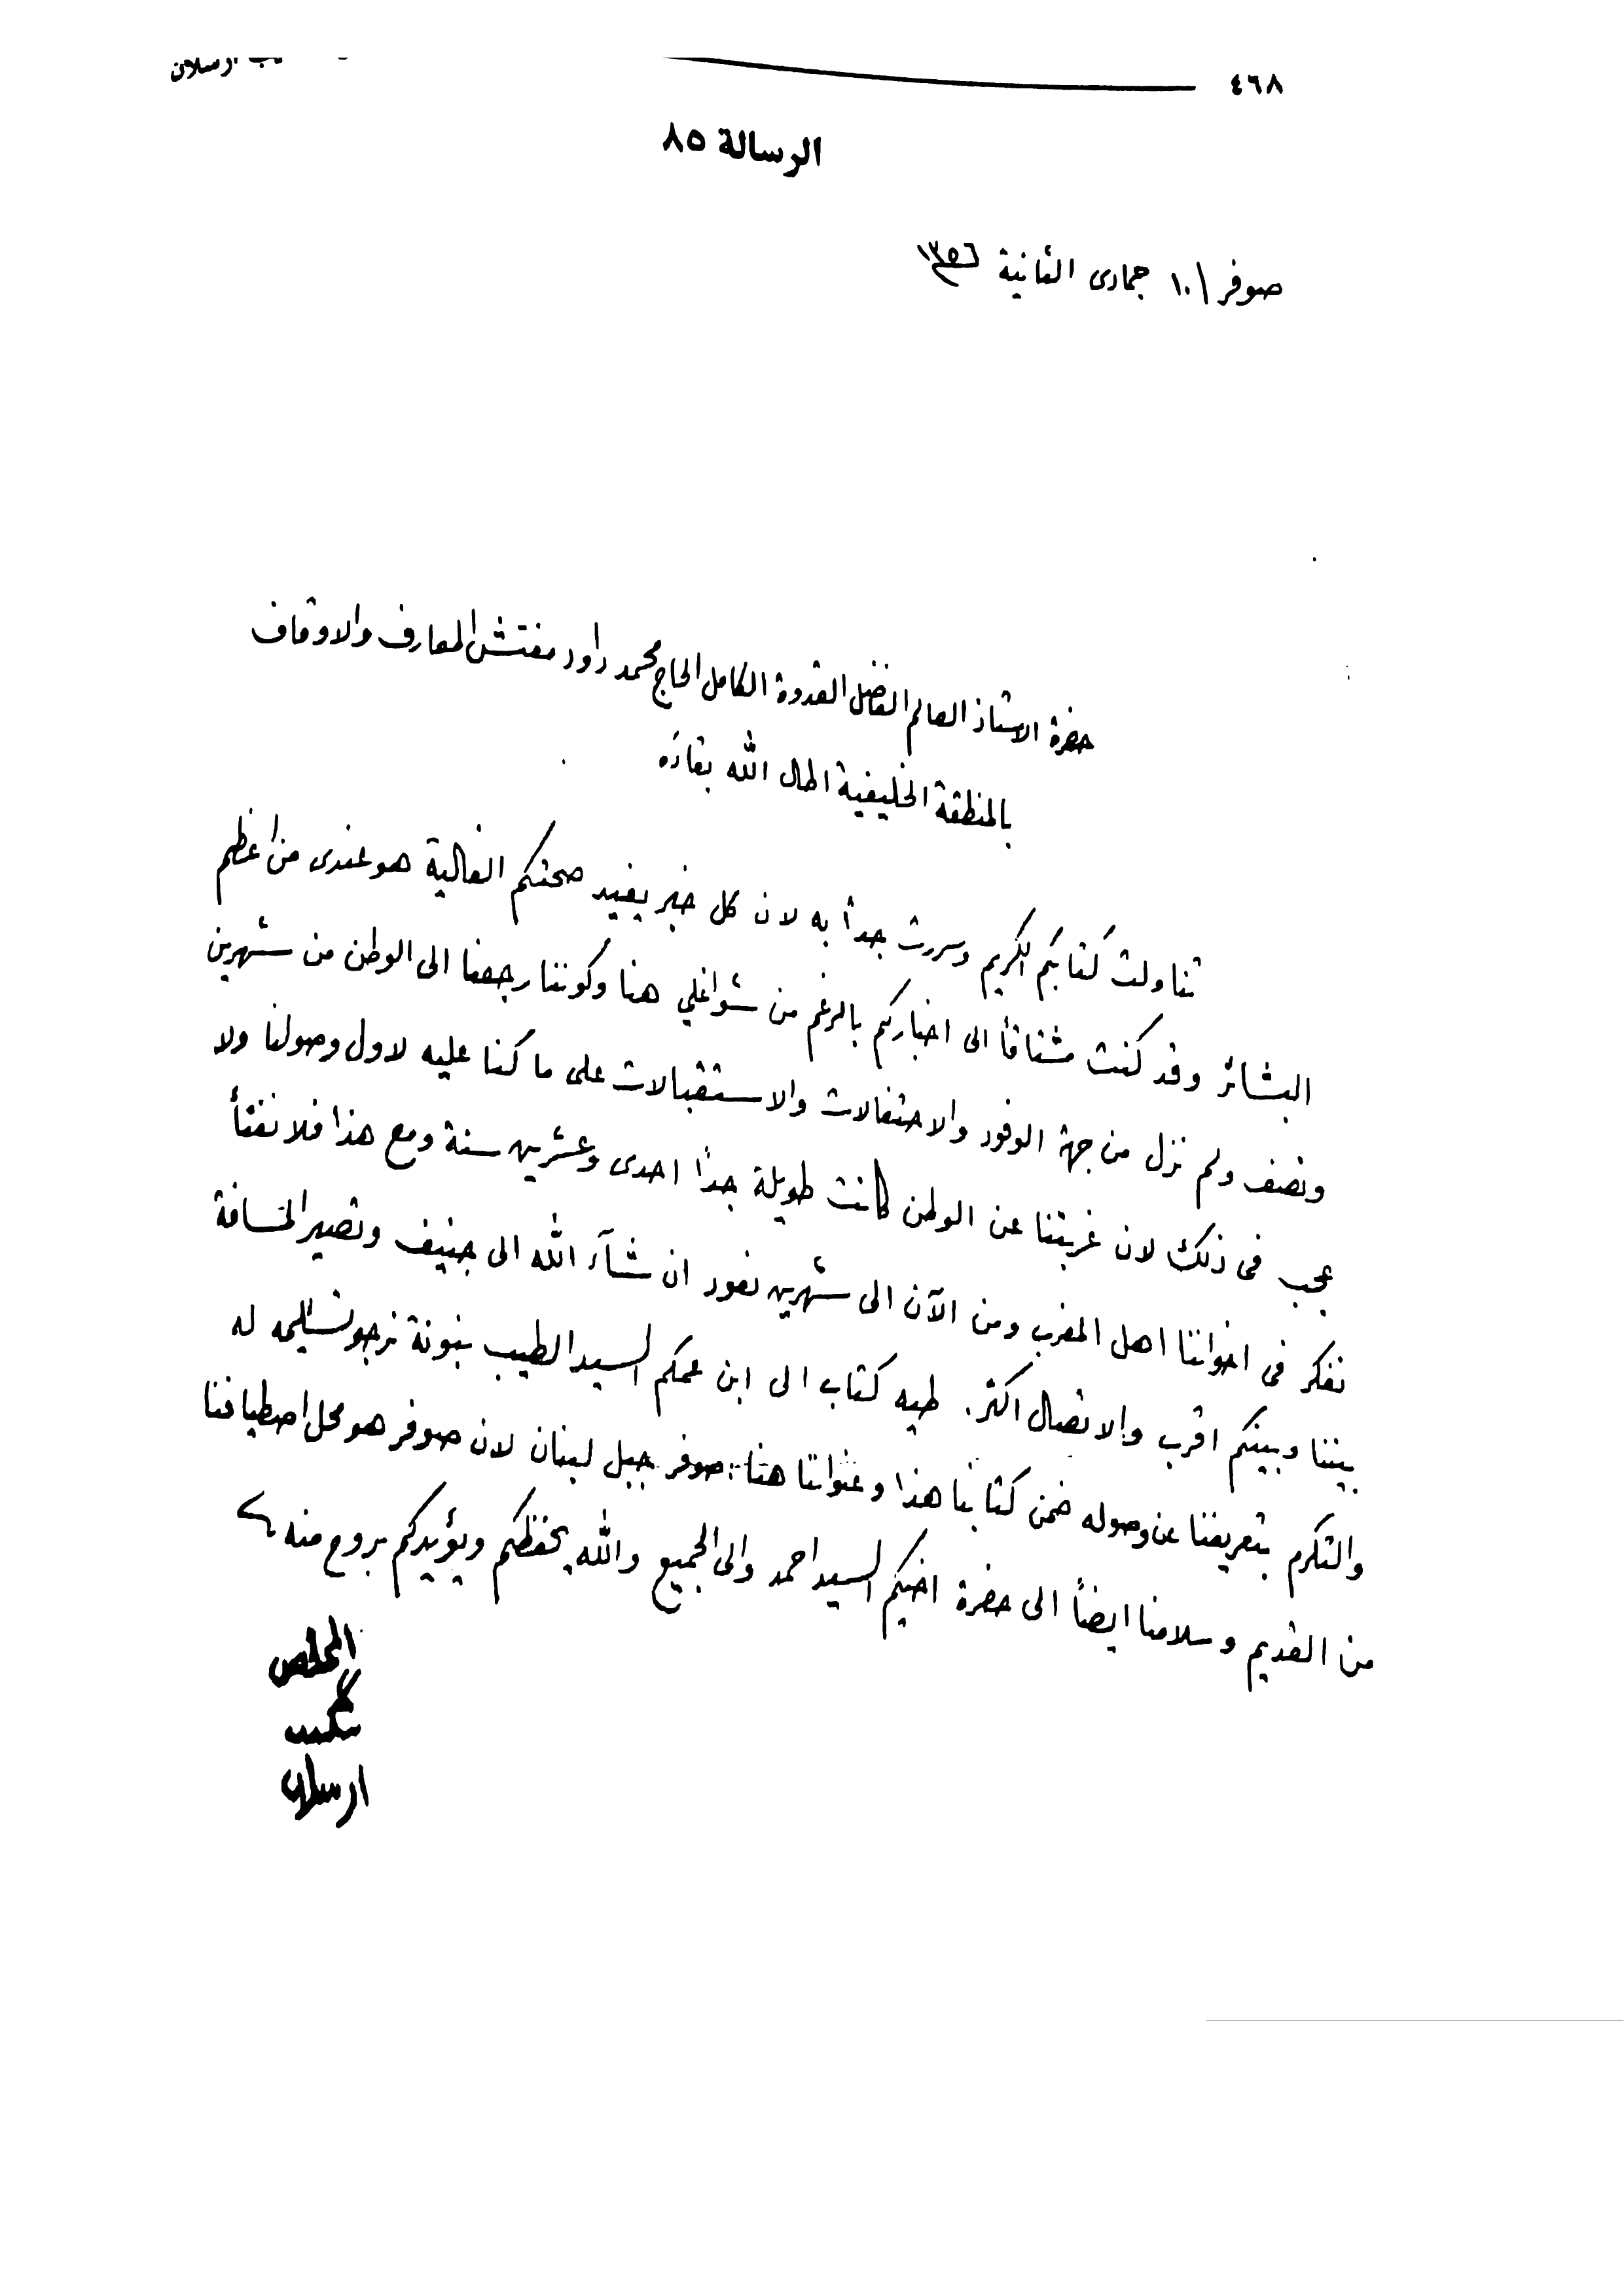 ٤٦٨
ارسلان
الرسالة ٨٥
صوفر ١٠ جمادى الثانية ١٣٥٦
حضرة الاستاذ العالم الفاضل القدوة الكامل الحاج محمد داود مفتش المعارف والاوقاف
بالمنطقة الخليفية اطال الله بقاءه
تناولت كتابكم الكريم وسررت جداً به لان كل خبر يفيد صحتكم الغالية هو عندى من اعظم
البشائر وقد كنت مشتاقاً الى اخباركم بالرغم من شواغلي هنا وكوننا رجعنا الى الوطن من شهرين
ونصف ولم نزل من جهة الوفود والاحتفالات والاستقبالات على ما كنا عليه لاول وصولنا ولا
عجب فى ذلك لان غربتنا عن الوطن كانت طويلة جداً احدى وعشرين سنة ومع هذا فلا نفتأ
نفكر فى اخواننا اهل المغرب ومن الآن الى شهرين نعود ان شآء الله الى جنيف وتصير المسافة
بيننا وبينكم اقرب والاتصال اكثر. طيه كتاب الى ابن عمكم السيد الطيب بنونة نرجو تسليمه له
والتكرم بتعريفنا عن وصوله ضمن كتابنا هذا وعنواننا هنا: صوفر جبل لبنان لان صوفر هو محل اصطيافنا
من القديم وسلامنا ايضاً الى حضرة اخيكم السيد احمد والى الجميع والله يحفظكم ويؤيدكم بروح منه
المخلص
شكيب
ارسلان